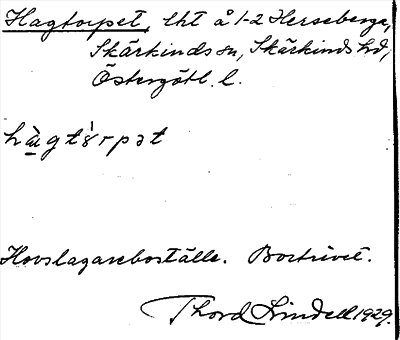 Hagtorpet, lht å 1-2 Herseberga,
Skärkinds sn, Skärkinds hd,
Östergötl. l.
hàgtórpət
Hovslagareboställe. Bortrivet.
Thord Lindell 1929.